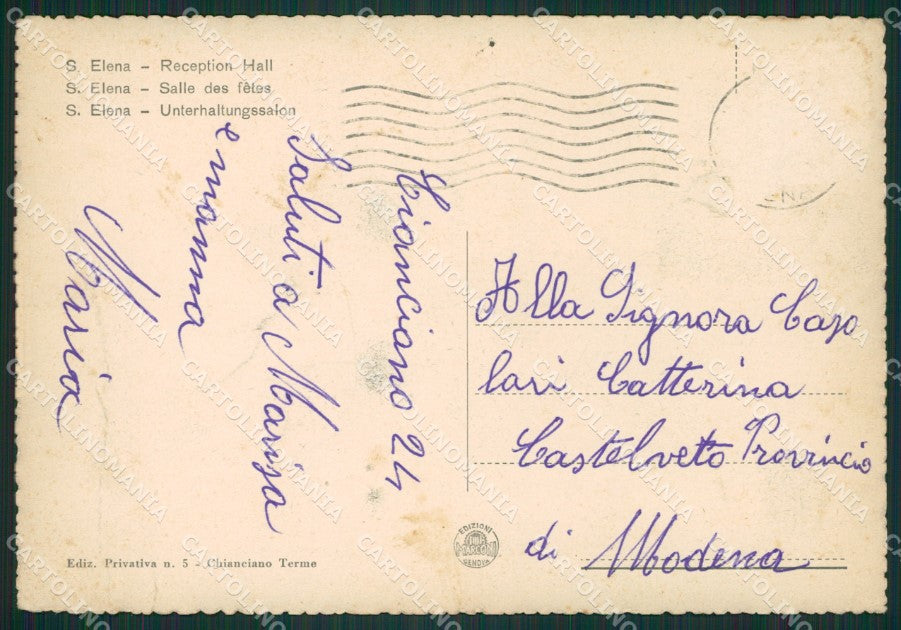 S. Elena – Reception Hall
S. Elena – Salle des fêtes
S. Elena – Unterhaltungssalon
Cianciano 24
Saluti a Marisa
e mamma
Maria
Alla Signora Capo
lari Catterina
Castelveto Provincia
di Modena
EDIZIONI
MARCONI
GENOVA
Ediz. Privativa n. 5 - Chianciano Terme
CARTOLINOMANIA